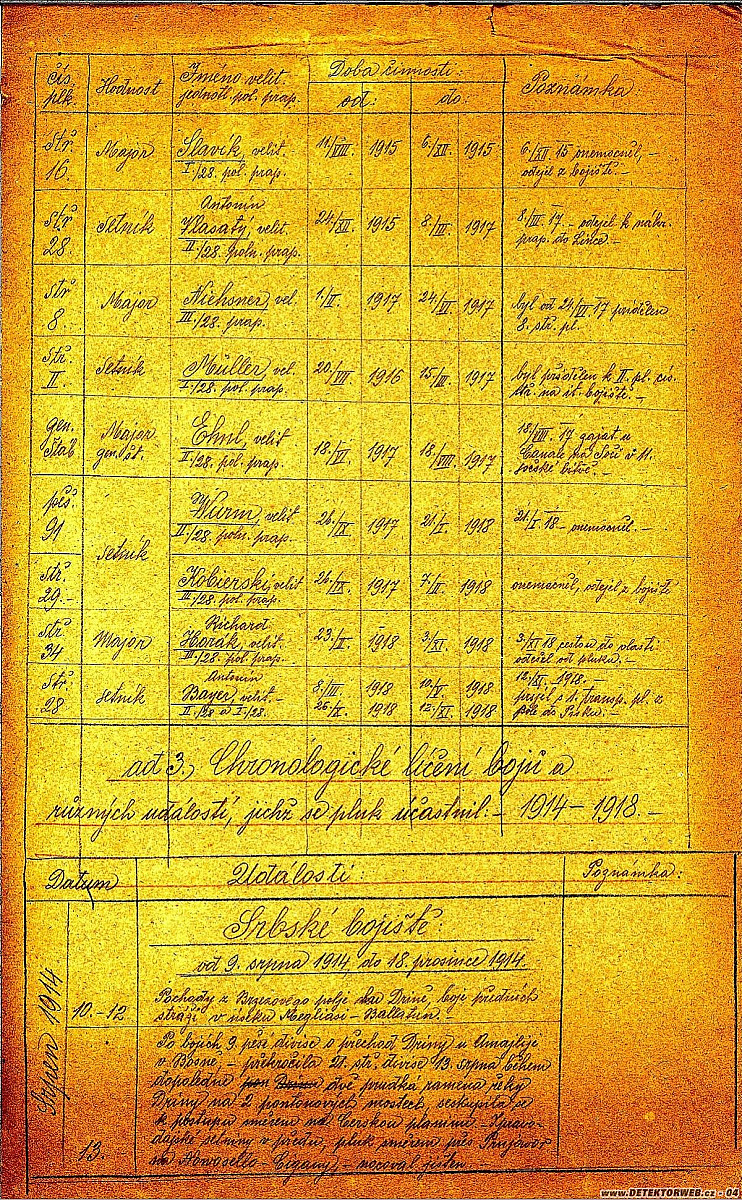 čís. plk. Hodnost Jméno velit. jednotl. pol. prap. Doba činnosti: od: do: Poznámka:
stř. 16. Major Slavík, velit. I./28. pol. prap. 11./VIII. 1915 6./XII. 1915 6./XII. 15 onemocněl, – odejel z bojiště. –
stř. 28. Setník Antonín Klasatý, velit. II./28. poln. prap. 24./XI. 1915 8./III. 1917 8./III. 17. – odejel k náhr. prap. do Lince –
stř. 8. Major Nichsner, vel. III./28. prap. 1./II. 1917 24./VI. 1917 byl od 24./VI 17 přidělen 8. stř. pl.
stř. II. Setník Müller, vel. I./28. pol. prap. 20./VII 1916 15./III. 1917 byl přidělen k II. pl. cís. stř. na it. bojiště. –
gen. štáb Major gen. št. Ehnl, velit II./28. pol. prap. 18./V. 1917 18./VIII. 1917 18./VIII. 17 zajat u Canale na Soči v 11. sočské bitvě. –
pěš. 91 setník Wurm, velit II./28. poln. prap. 26./IX 1917 21./I. 1918 21./I 18 – onemocněl. –
stř. 29. – Kobierski, velit III./28. pol. prap. 26./IX. 1917 7./V. 1918 onemocněl, odejel z bojiště
stř. 34 Major Richard Horák, velit. III./28. pol. prap. 23./V. 1918 3./XI. 1918 3./XI 18 cestou do vlasti odejel od pluku. –
stř. 28 setník Antonín Bayer, velit. – II./28 a I./28. 8./III. 1918 10./V. 1918 26./X. 1918 12./XI. 1918 12./XI. 1918. – přijel s 1. transp. pl. z pole do Písku. –
ad 3., Chronologické líčení bojů a
různých událostí, jichž se pluk účastnil: – 1914 – 1918. –
Datum Události: Poznámka:
Srpen 1914
Srbské bojiště:
od 9. srpna 1914 do 18. prosince 1914.
10. – 12 Pochody z Brzezovego polje ku Drině, boje předních
stráží, v úseku Megliasi – Ballatun. –
Po bojích 9. pěší divise o přechod Driny u Amajlije
v Bosně, – překročila 21. stř. divise 13. srpna během
dopoledne dvě prudká ramena řeky
Driny na 2 pontonových mostech, seskupila se
k postupu směrem na Cerskou planinu. – Zpravo-
dajské setniny v předu, pluk směrem přes Prnjavor
13. na Novoselo – Cigany, – nocoval jištěn. –
www.DETEKTORWEB.cz - 04